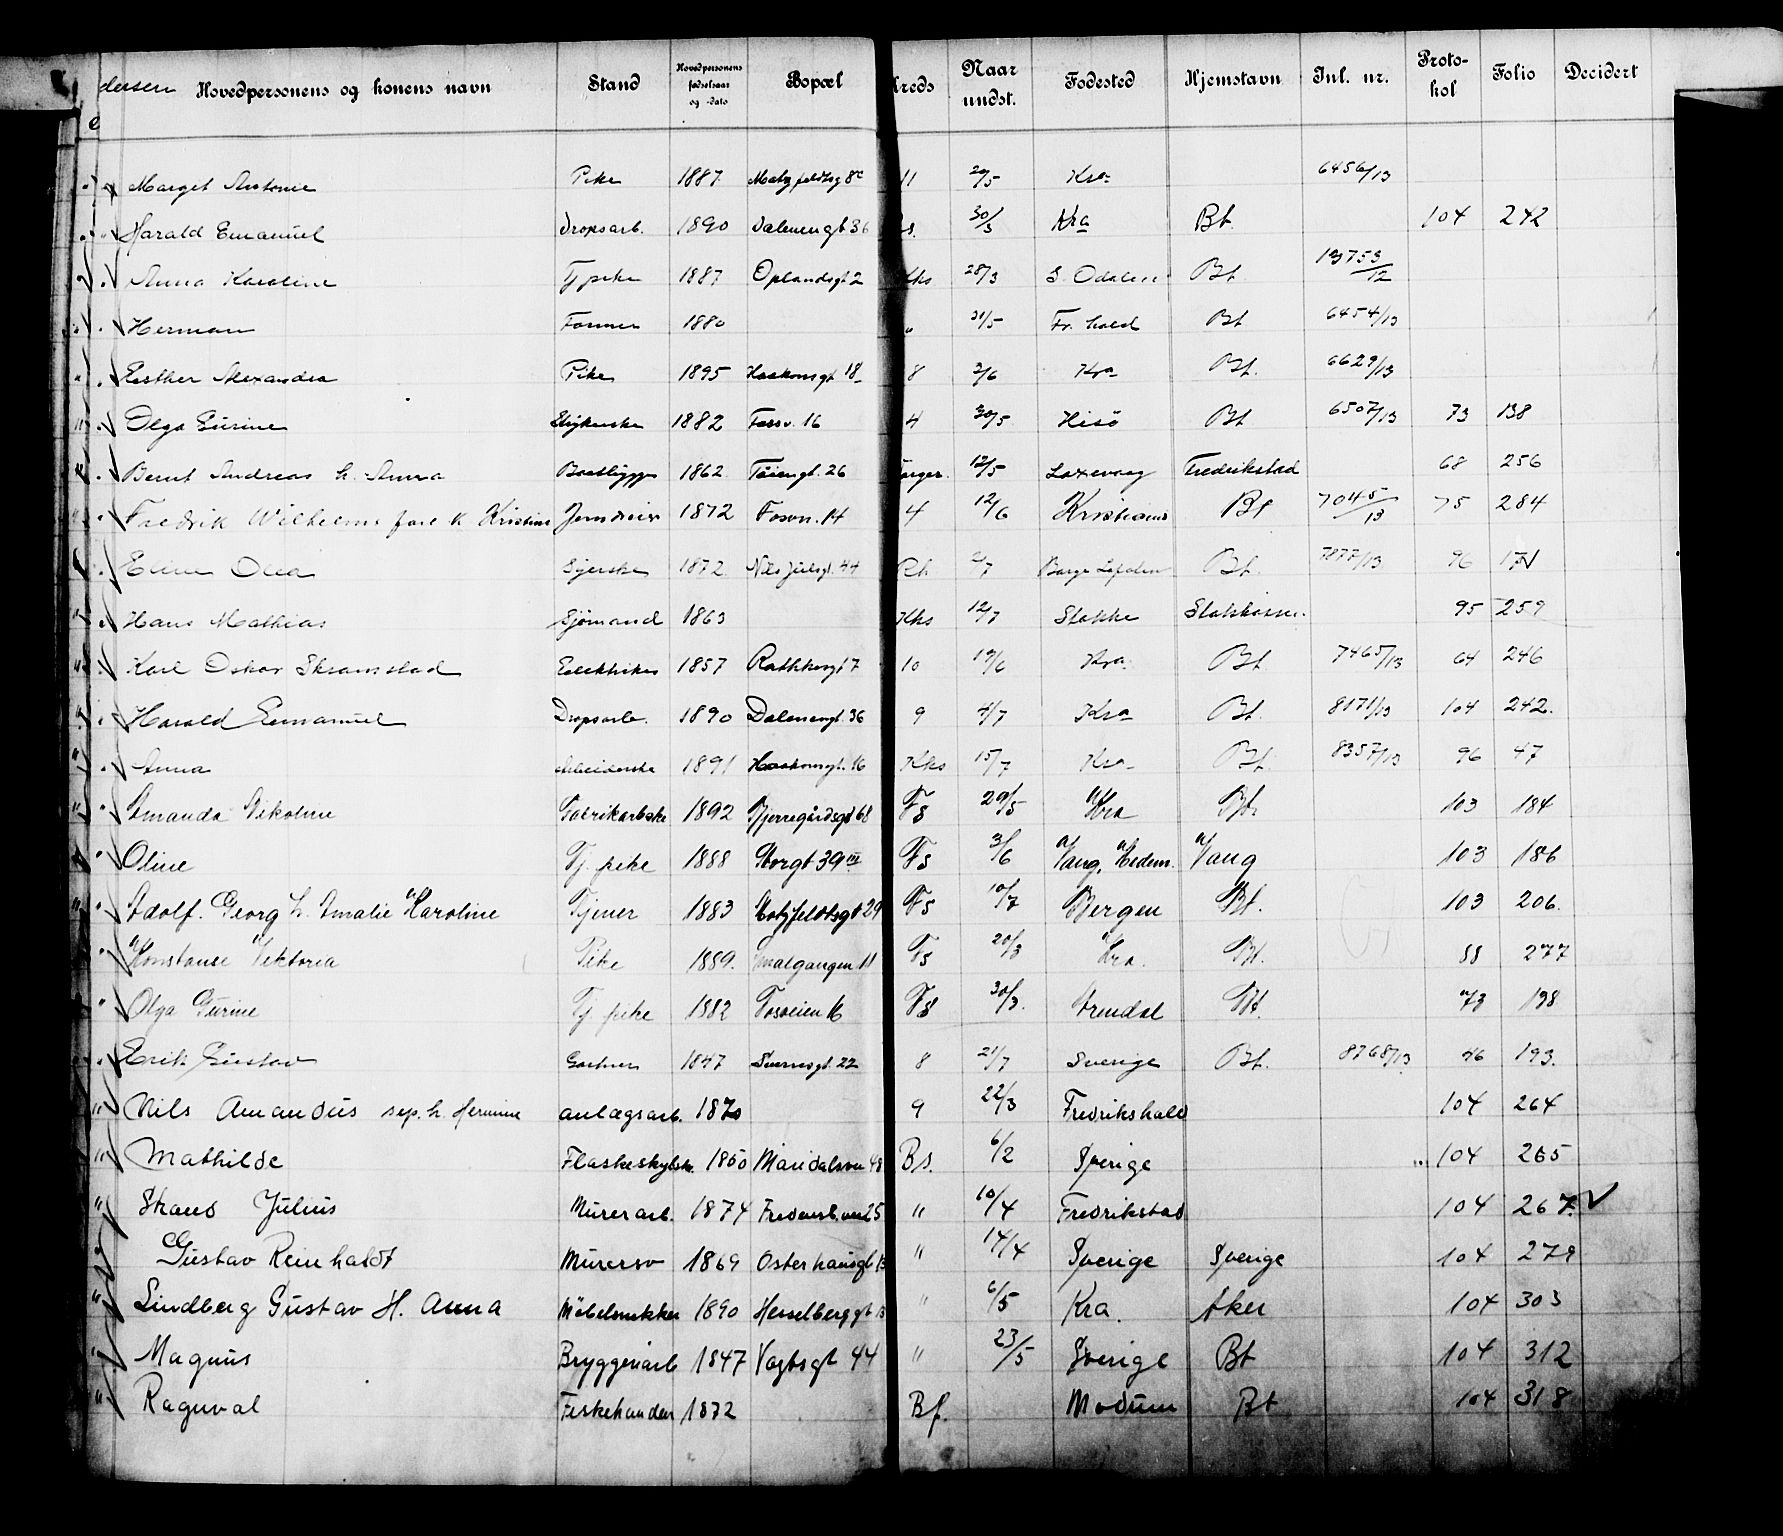 dersen Hovedpersonens og konens navn Stand Hovedpersonens fødselsaar og -dato Bopæl Kreds Naar undst. Fødested Hjemstavn Inl. nr. Protokol Folio Decidert
Marget Antonie Pike 1887 8c 11 29/5 Kra 6456/13
Harald Emanuel Dropsarb. 1890 Dalenengt 36 30/3 Kra Bt. 104 242
Anna Karoline Tj pike 1887 Oplandsgt 2 Kks 28/3 S. Odalen Bt 13753/12
Herman Former 1880 " 31/5 Fr. hald Bt 6454/13
Esther Alexandra Pike 1895 Haakonsgt 18 8 2/6 Kra Bt. 6629/13
Olga Gurine Strykerske 1882 Fossv. 16 4 30/5 Hisö Bt 6507/13 73 138
Bernt Andreas h. Anna Baatbygg 1862 Töiengt. 26 12/5 Laxevaag Fredrikstad 68 256
Fredrik Wilhelm k Kristine Jerndreier 1872 Fosvn. 14 4 12/6 Kristians Bt 7045/13 75 284
Syerske 1872 Nils Juelsgt. 44 /7 Bt. 7877/13 96
Hans Mathias Sjömand 1863 Kks 12/7 Stokke 95 259
Karl Oskar Skramstad Elektriker 1857 Rathkesgt 7 10 19/6 Kra Bt 7465/13 64 246
Harald Emanuel Dropsarb. 1890 Dalenengt. 36 9 4/7 Kra Bt. 8171/13 104 242.
Anna Arbeiderske 1891 Haakonsgt. 16 Kks 15/7 Kra Bt. 8357/13 96 47
Amanda Nikoline Fabrikarbske 1892 Bjerregårdsgt 68 Fs 29/5 Kra Bt. 103 184
Oline Tj. pike 1888 Storgt 39 III Fs 3/6 Vang, Hedem. Vang 103 186
Adolf. Georg h. Amalie Karoline Tjener 1883 Hotzfeldtsgt 29 Fs 10/7 Bergen Bt. 103 206.
Konstanse Viktoria Pike 1889. Smalgangen 11 Fs 20/3 Kra. Bt. 88 277
Olga Gurine Tj pike 1882 Fosveien 16 Fs 30/3. Arendal Bt. 73 198
Erik Gustav Gartner 1847 Sverresgt. 22 8 21/7 Sverige Bt. 8768/13 46 193.
" Nils Amandus sep. h. Hermine anlægsarb. 1870 9 22/3 Fredrikshald 104 264
" Mathilde Flaskeskylske 1850 Maridalsvn 48 Bs. 6/2 Sverige 104 265
" Julius Murerarb. 1874 25 " 10/4 Fredrikstad 104 267.
Gustav Reinhaldt Murersv 1869 Osterhausgt 13 " 14/4 Sverige Sverige 104 279
" Lindberg Gustav H. Anna Möbelsnekker 1890 Hesselberggt 13 " 6/5 Kra. Aker 104 303
" Magnus Bryggeriarb 1847 Vogtsgt 44 " 23/5 Sverige Bt 104 312
" Ragnval Fiskehandler 1872 Bf. Modum Bt 104 318